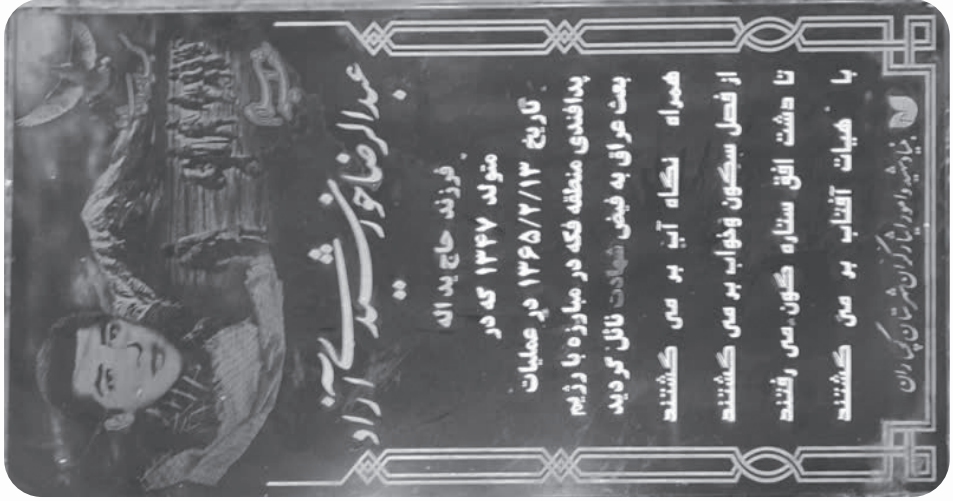 عبدالرضا خورشیدی آزاد
فرزند حاج یداله
متولد ۱۳۴۷ که در
تاریخ ۱۳۶۵/۲/۱۳ در عملیات
پدافندی منطقه فکه در مبارزه با رژیم
بعث عراق به فیض شهادت نائل گردید
همراه نگاه آب بر می گشتند
از فصل سکون و خواب بر می گشتند
تا دشت افق ستاره گون می رفتند
با هیات آفتاب بر می گشتند
بنیاد شهید و امور ایثارگران شهرستان گچساران